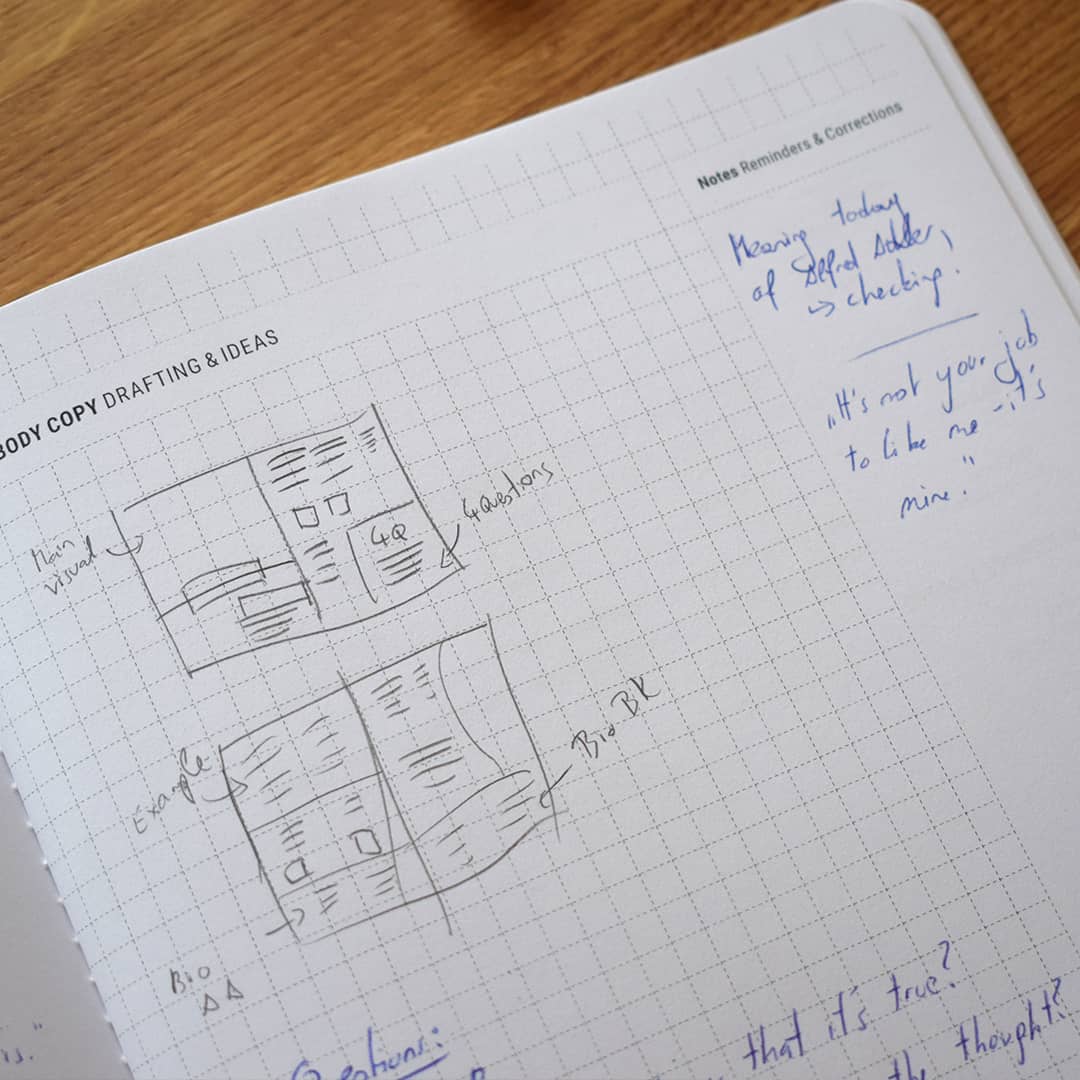 Notes Reminders & Corrections
Meaning today
of Alfred Adler,
→ checking.
„It's not your job
to like me - it's
mine."
BODY COPY DRAFTING & IDEAS
Main
visual
4Q
4 Questions
Example
Bio BK
Bio
AA
Questions:
that it's true?
the thought?
is."